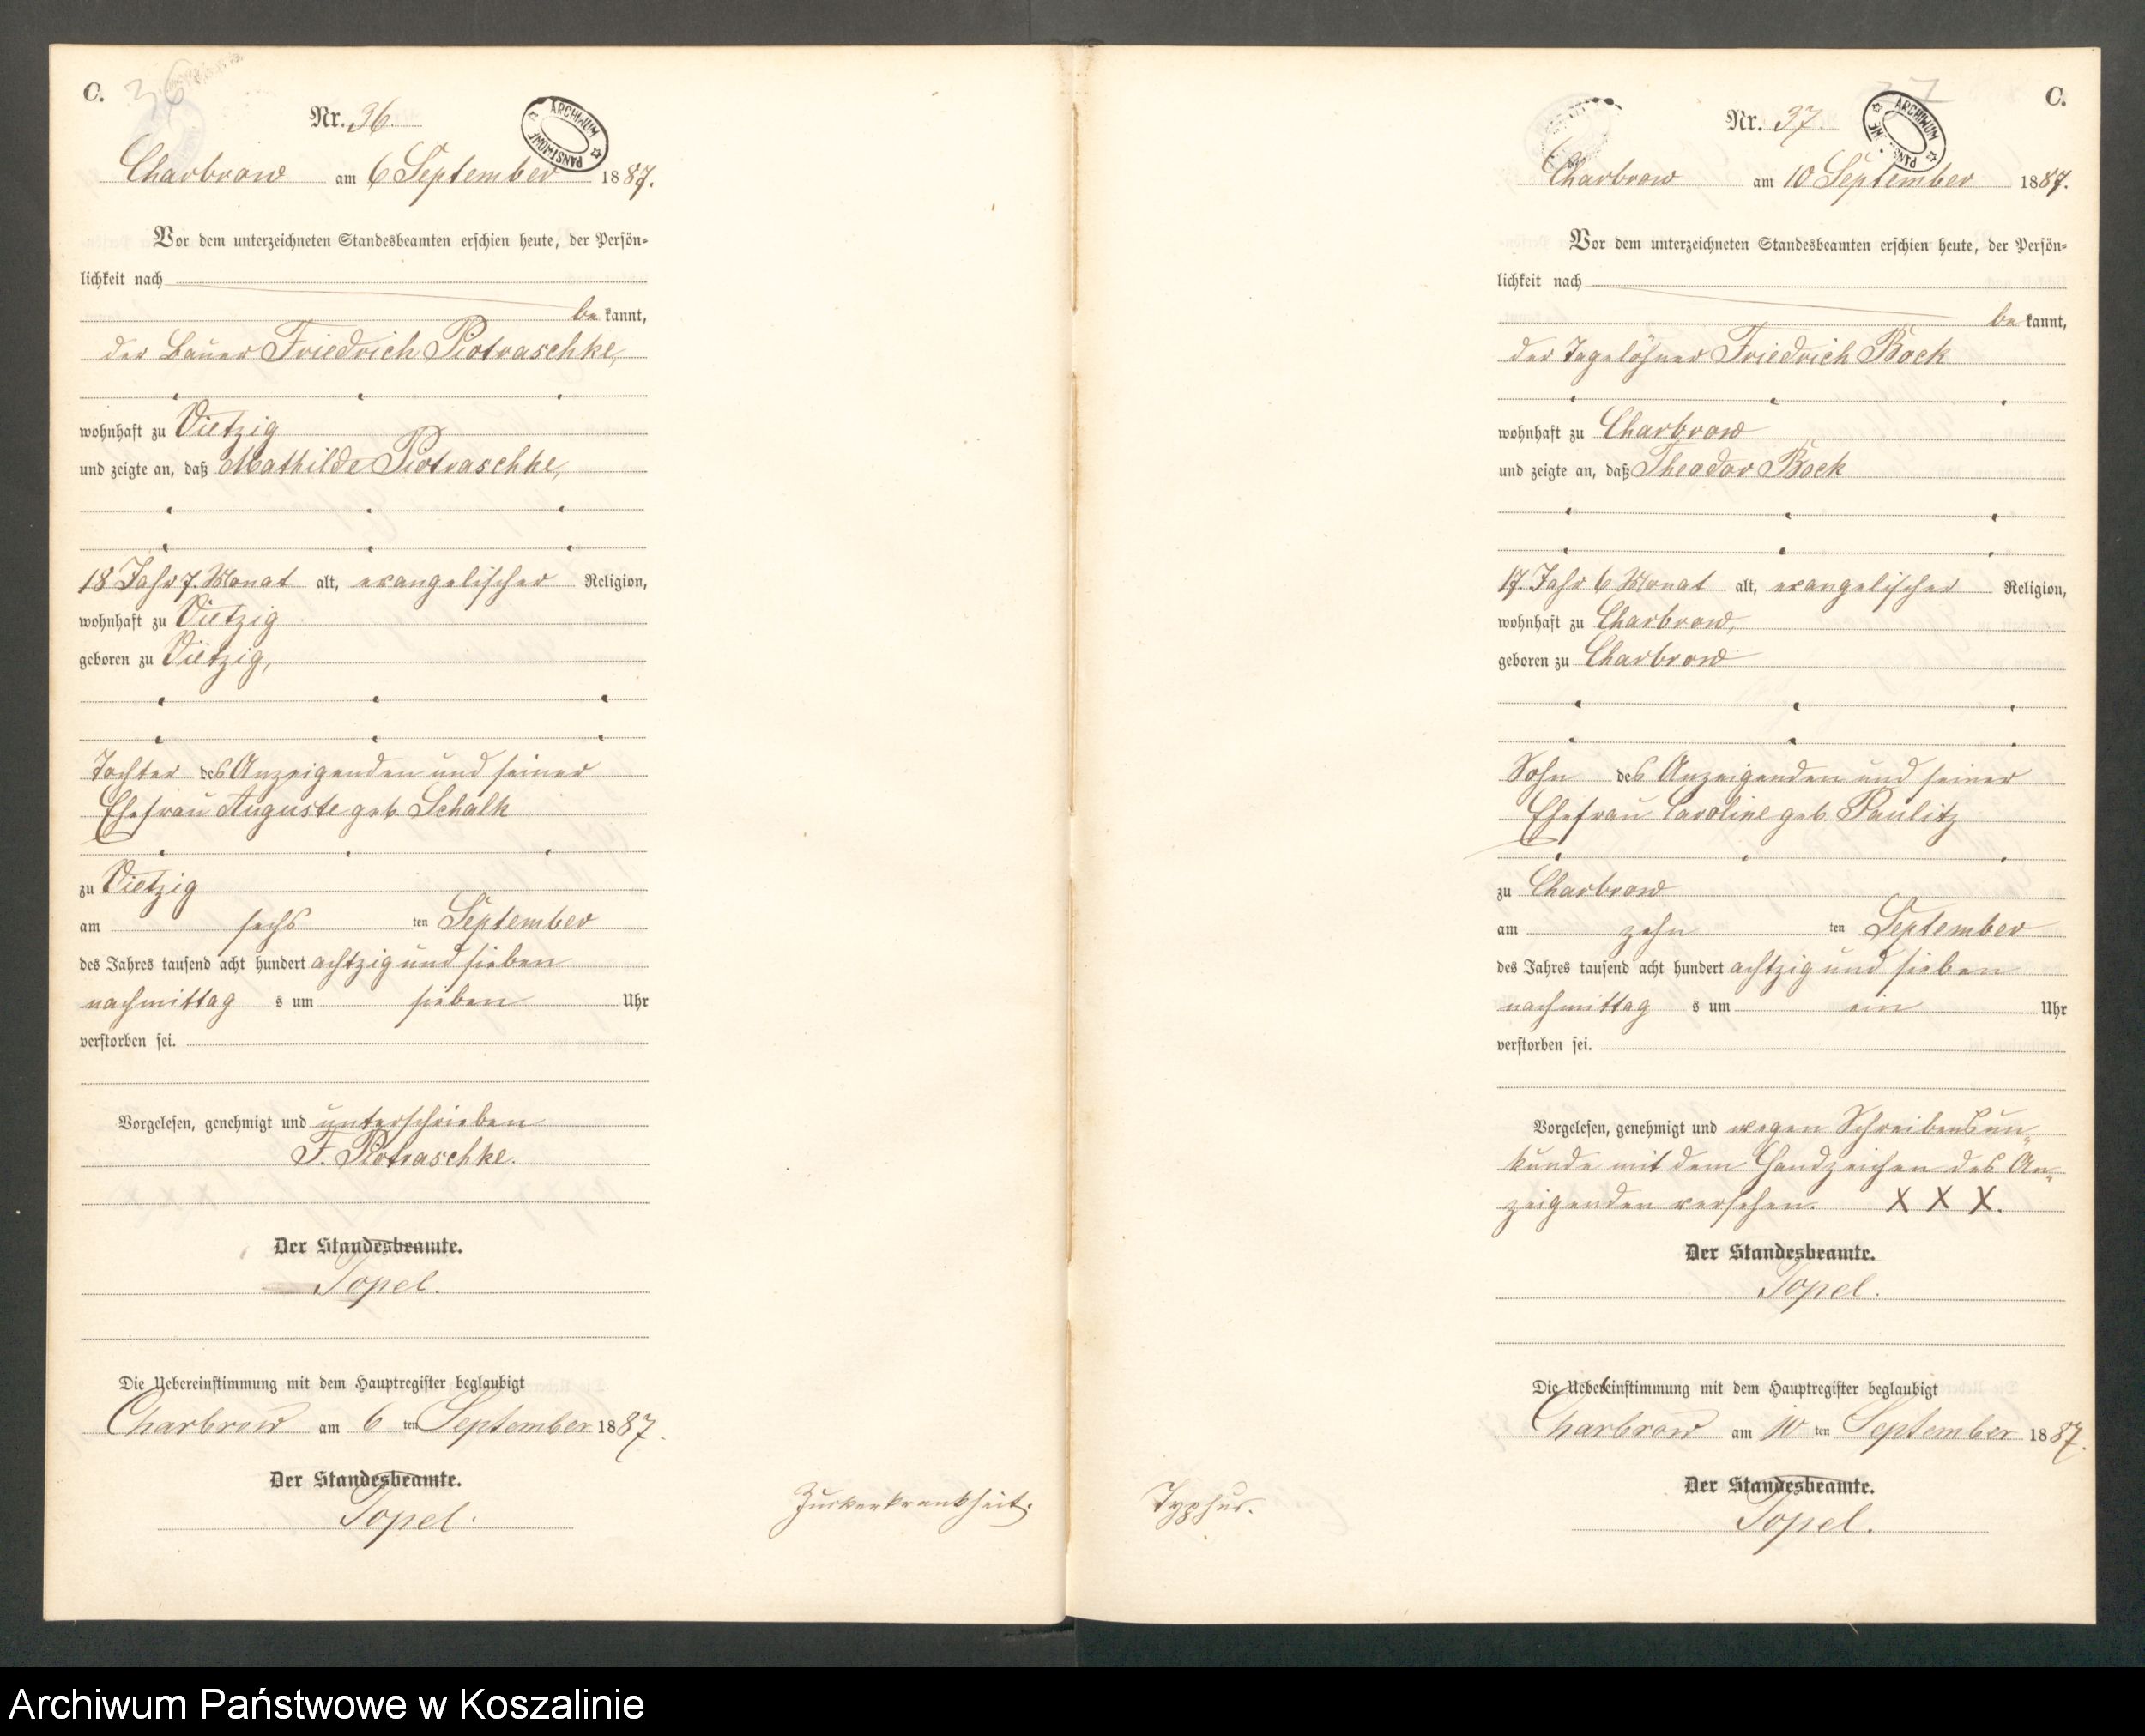 C.
36
Nr. 36.
ARCHIWUM PAŃSTWOWE
Charbrow am 6 September 1887.
Vor dem unterzeichneten Standesbeamten erschien heute, der Persön-
lichkeit nach
be kannt,
der Bauer Friedrich Piotraschke,
wohnhaft zu Vietzig
und zeigte an, daß Mathilde Piotraschke,
18 Jahr 7. Monat alt, evangelischer Religion,
wohnhaft zu Vietzig
geboren zu Vietzig,
Tochter des Anzeigenden und seiner
Ehefrau Auguste geb. Schalk
zu Vietzig
am sechs ten September
des Jahres tausend acht hundert achtzig und sieben
nachmittag s um sieben Uhr
verstorben sei.
Vorgelesen, genehmigt und unterschrieben
F. Piotraschke.
Der Standesbeamte.
Topel.
Die Uebereinstimmung mit dem Hauptregister beglaubigt
Charbrow am 6 ten September 1887.
Der Standesbeamte.
Topel.
Zuckerkrankheit.
C.
37
Nr. 37.
ARCHIWUM
Charbrow am 10 September 1887.
Vor dem unterzeichneten Standesbeamten erschien heute, der Persön-
lichkeit nach
be kannt,
der Tagelöhner Friedrich Bock
wohnhaft zu Charbrow
und zeigte an, daß Theodor Bock
17. Jahr 6 Monat alt, evangelischer Religion,
wohnhaft zu Charbrow,
geboren zu Charbrow
Sohn des Anzeigenden und seiner
Ehefrau Caroline geb. Paulitz
zu Charbrow
am zehn ten September
des Jahres tausend acht hundert achtzig und sieben
nachmittag s um ein Uhr
verstorben sei.
Vorgelesen, genehmigt und wegen Schreibensun-
kunde mit dem Handzeichen des An-
zeigenden versehen. X X X.
Der Standesbeamte.
Topel.
Die Uebereinstimmung mit dem Hauptregister beglaubigt
Charbrow am 10 ten September 1887.
Der Standesbeamte.
Topel.
Typhus.
Archiwum Państwowe w Koszalinie